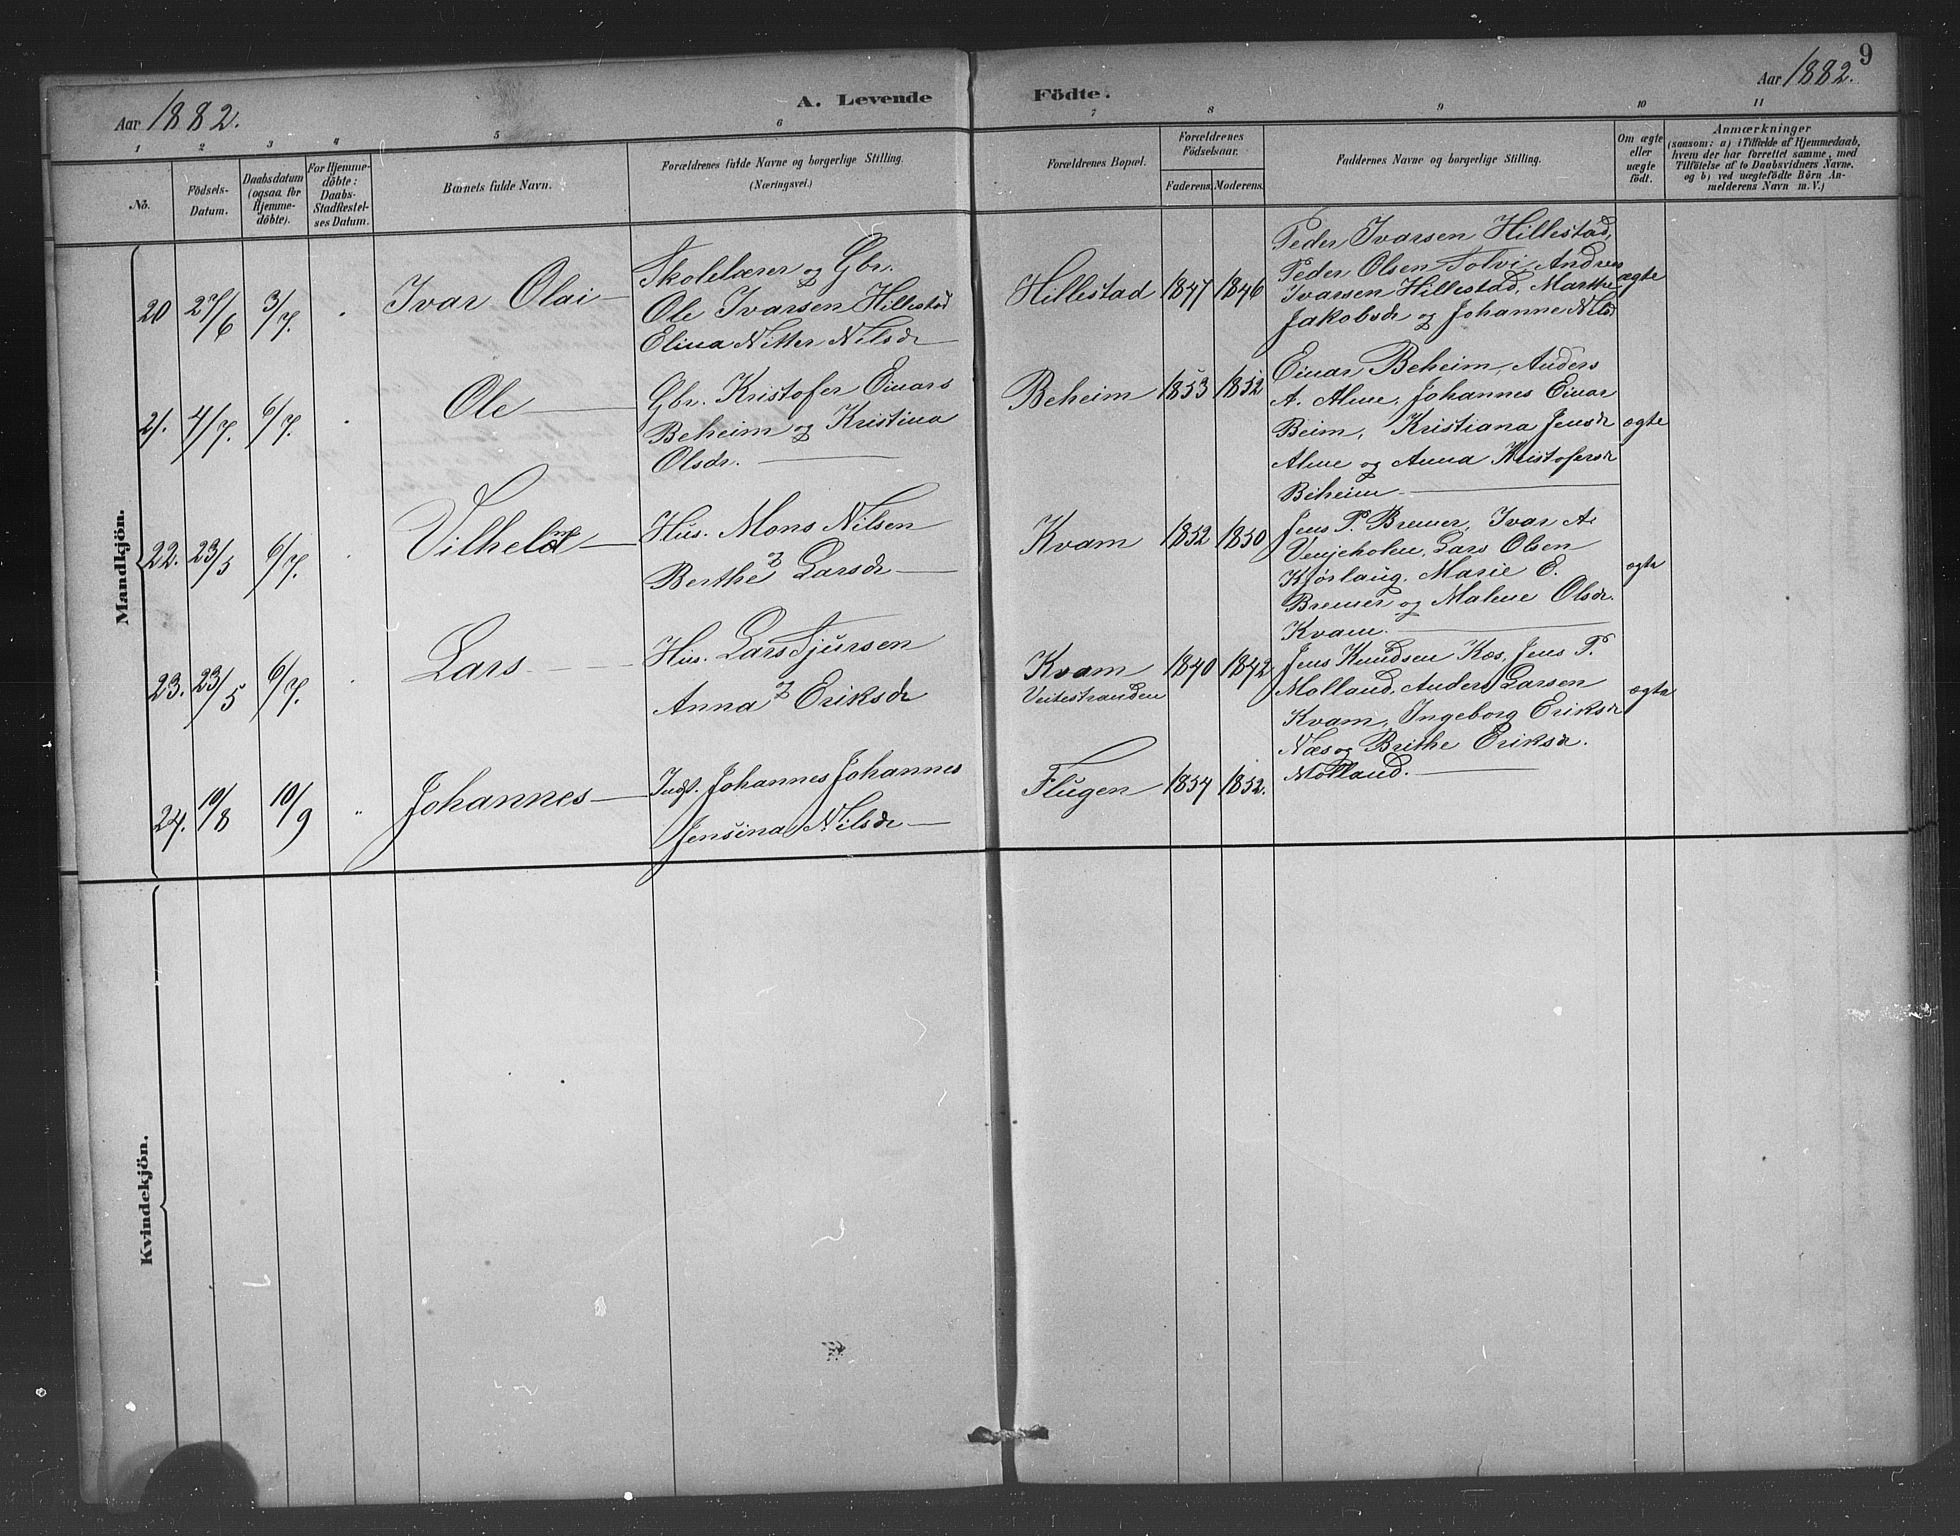 9
Aar 1882.
A. Levende Födte.
Aar 1882.
1 2 3 4 5 6 7 8 9 10 11
No.
Födsels-
Datum.
Daabsdatum
(ogsaa for
Hjemme-
döbte).
For Hjemme-
döbte:
Daabs-
Stadfæstel-
ses Datum.
Barnets fulde Navn.
Forældrenes fulde Navne og borgerlige Stilling.
(Næringsvei.)
Forældrenes Bopæl.
Forældrenes
Födselsaar.
Faderens. Moderens.
Faddernes Navne og borgerlige Stilling.
Om ægte
eller
uægte
födt.
Anmærkninger
(saasom: a) i Tilfælde af Hjemmedaab,
hvem der har forrettet samme, med
Tilföielse af to Daabsvidners Navne.
og b) ved uægtefödte Börn An-
melderens Navn m. V.)
Mandkjön.
20 27/6 3/7. Ivar Olai
Skolelærer og Gbr.
Ole Ivarsen Hillestad
Elina Nitter Nilsdr
Hillestad 1847 1846
Peder Ivarsen Hillestad,
Peder Olsen Solvi, Andreas
Ivarsen Hillestad, Marthe
Jakobsdr og Johanne Nilsd
ægte
21. 4/7. 6/7. Ole
Gbr. Kristofer Einars
Beheim og Kristina
Olsdr.
Beheim 1853 1852
Einar Beheim, Anders
A. Alme, Johannes Einar
Beim, Kristiana Jensdr
Alme og Anna Kristofersdr
Beheim
ægte
22. 23/5 6/7. Vilhelm
Hus. Mons Nilsen
og
Berthe Larsdr
Kvam 1852 1850
Jens P. Bremer, Ivar A.
Venjeholen, Lars Olsen
Kjørlaug, Marie E.
Bremer og Malene Olsdr.
Kvam.
ægte
23. 23/5 6/7. Lars
Hus. Lars Sjursen
og
Anna Eriksdr
Kvam
Veitestranden
1840 1842
Jens Knudsen Næs, Jens P.
Molland, Anders Larsen
Kvam, Ingeborg Eriksdr
Næs og Brithe Eriksdr.
Molland.
ægte
24. 10/8 10/9 " Johannes
Indst. Johannes Johannes
Jensina Nilsdr
Flugen 1854 1852.
Kvindekjön.